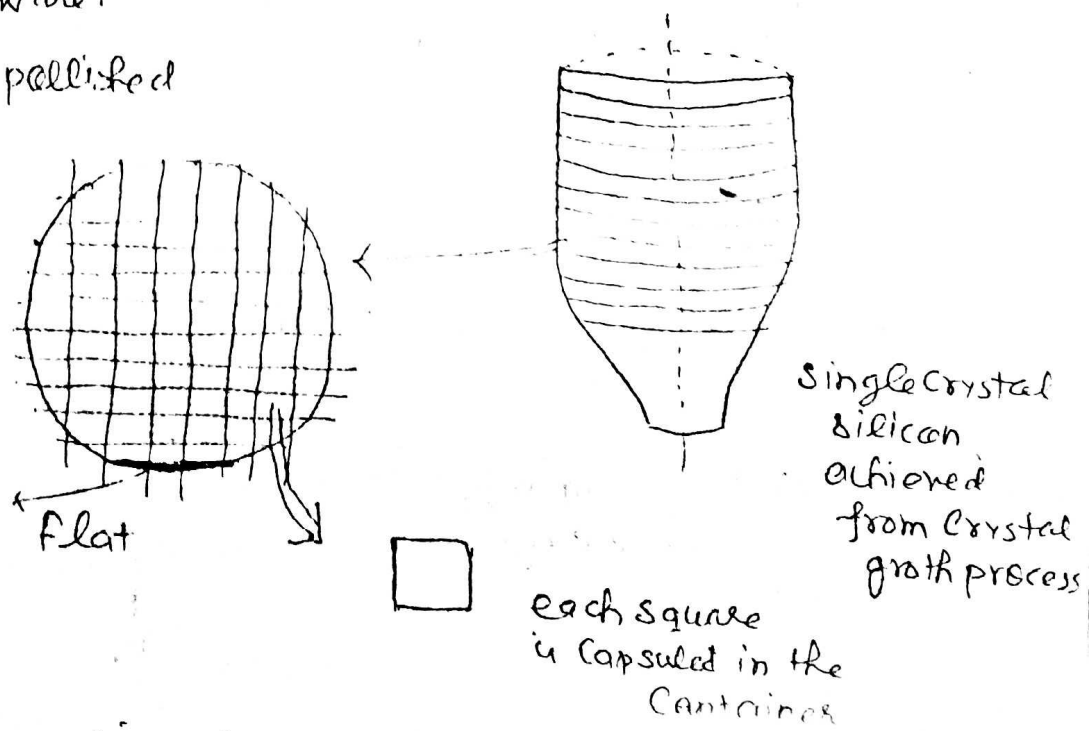 pollished
Flat
single Crystal
silicon
achieved
from Crystal
groth process
each square
is Capsuled in the
Container